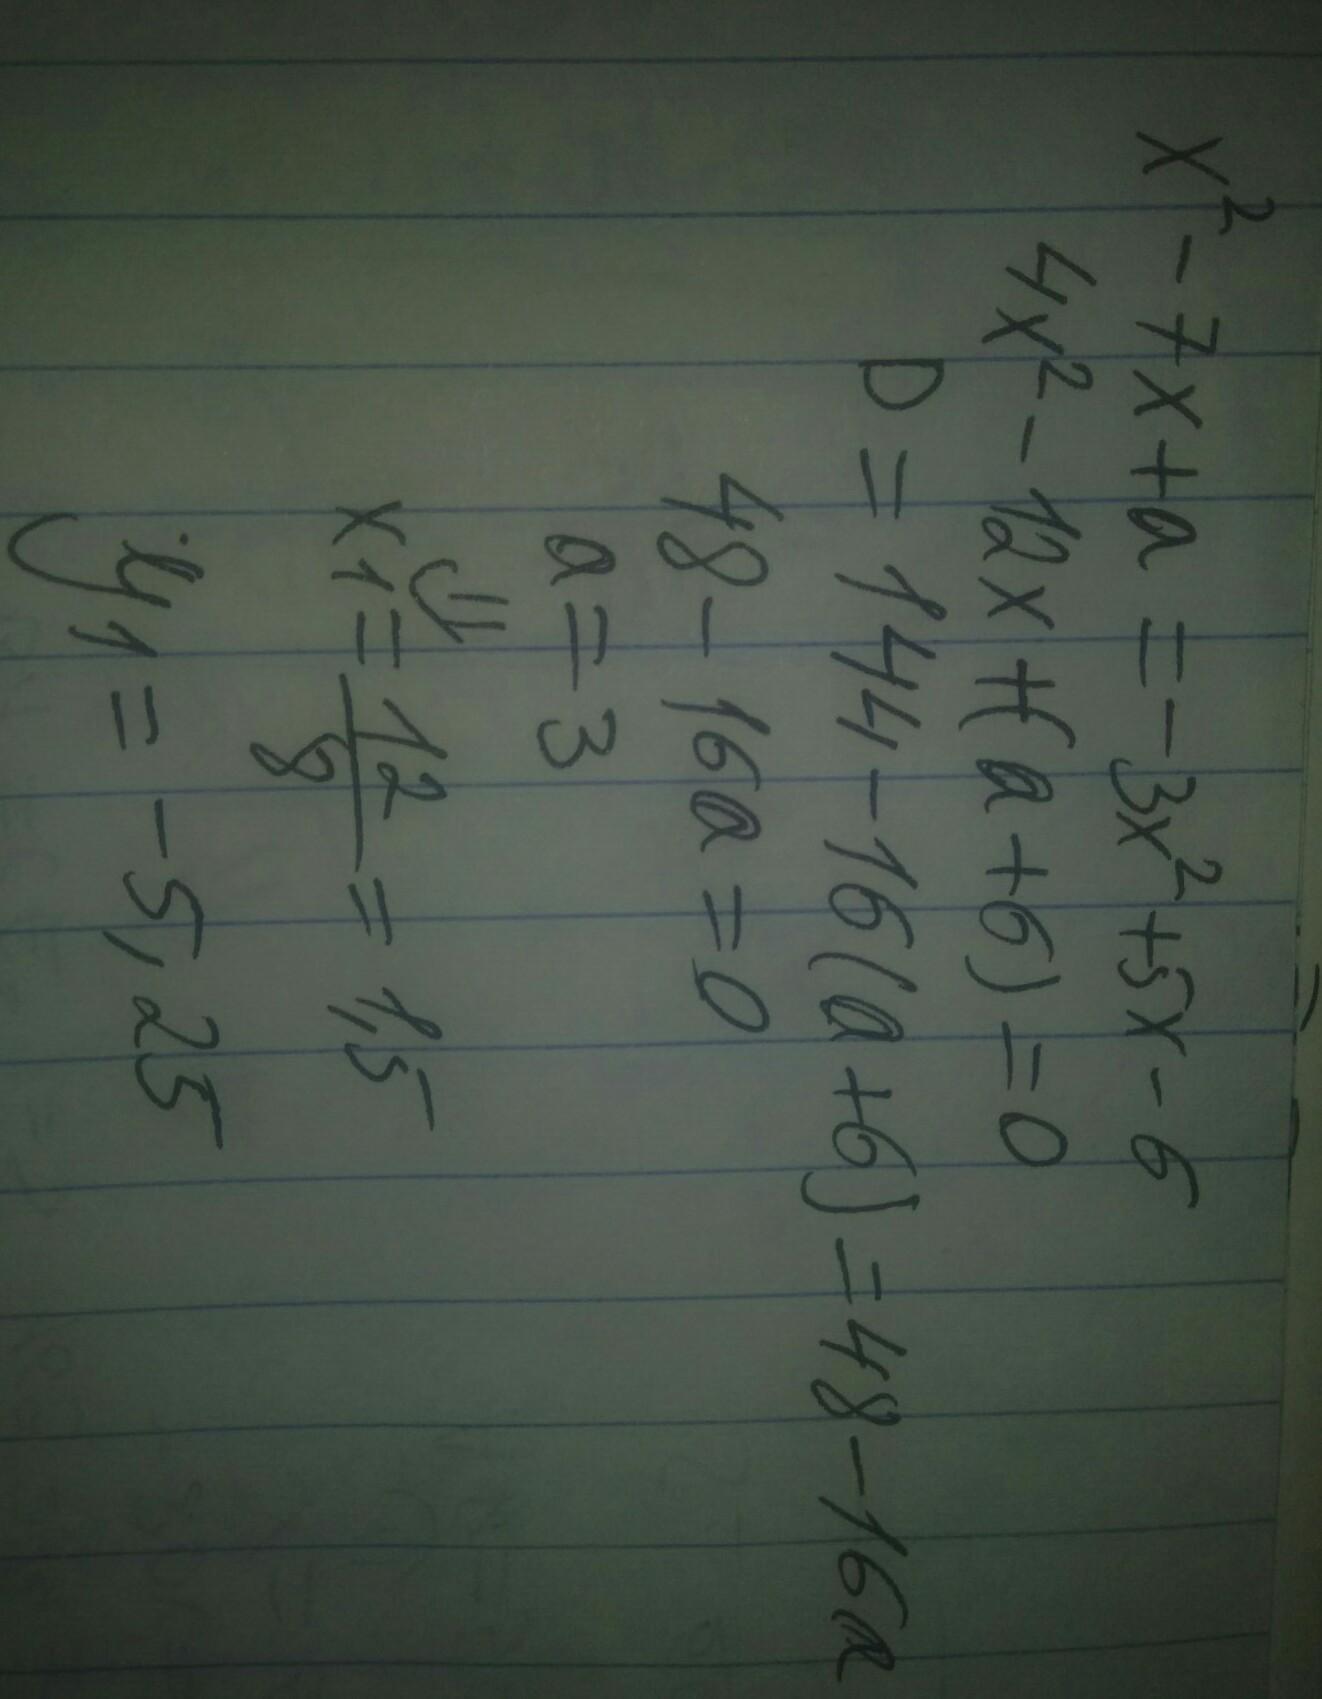 x² - 7x + a = - 3x² + 5x - 6
4x² - 12x + (a + 6) = 0
D = 144 - 16(a + 6) = 48 - 16a
48 - 16a = 0
a = 3
⇓
x1 = 12/8 = 1,5
y1 = - 5,25